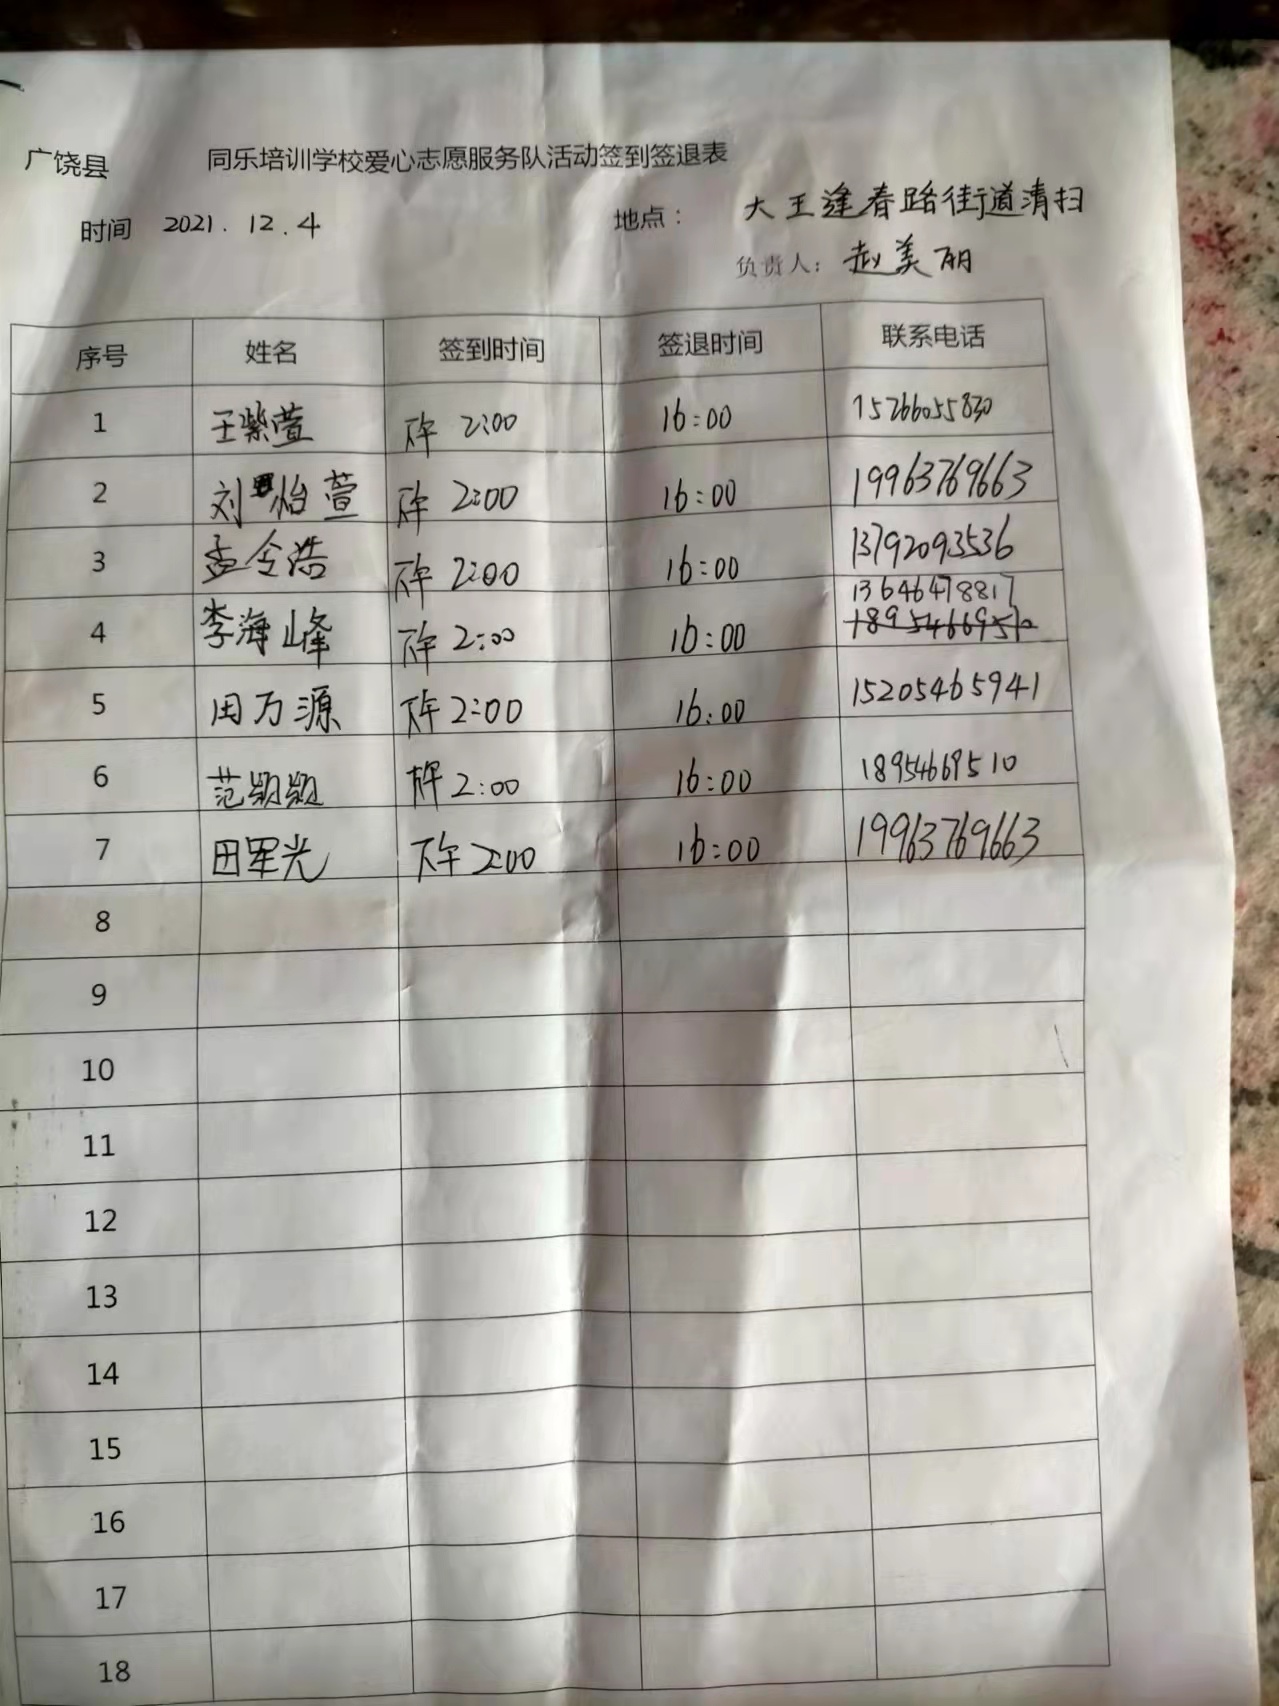 广饶县 同乐培训学校爱心志愿服务队活动签到签退表
时间 2021.12.4 地点： 大王逢春路街道清扫
负责人：赵美丽
序号 姓名 签到时间 签退时间 联系电话
1 王紫萱 下午 2:00 16:00 15266055830
2 刘怡萱 下午 2:00 16:00 19963769663
3 孟令浩 下午 2:00 16:00 13792093536
13646478817
4 李海峰 下午 2:00 16:00 18954669510
5 田万源 下午 2:00 16:00 15205465941
6 范颖颖 下午 2:00 16:00 18954669510
7 田军光 下午 2:00 16:00 19963769663
8
9
10
11
12
13
14
15
16
17
18